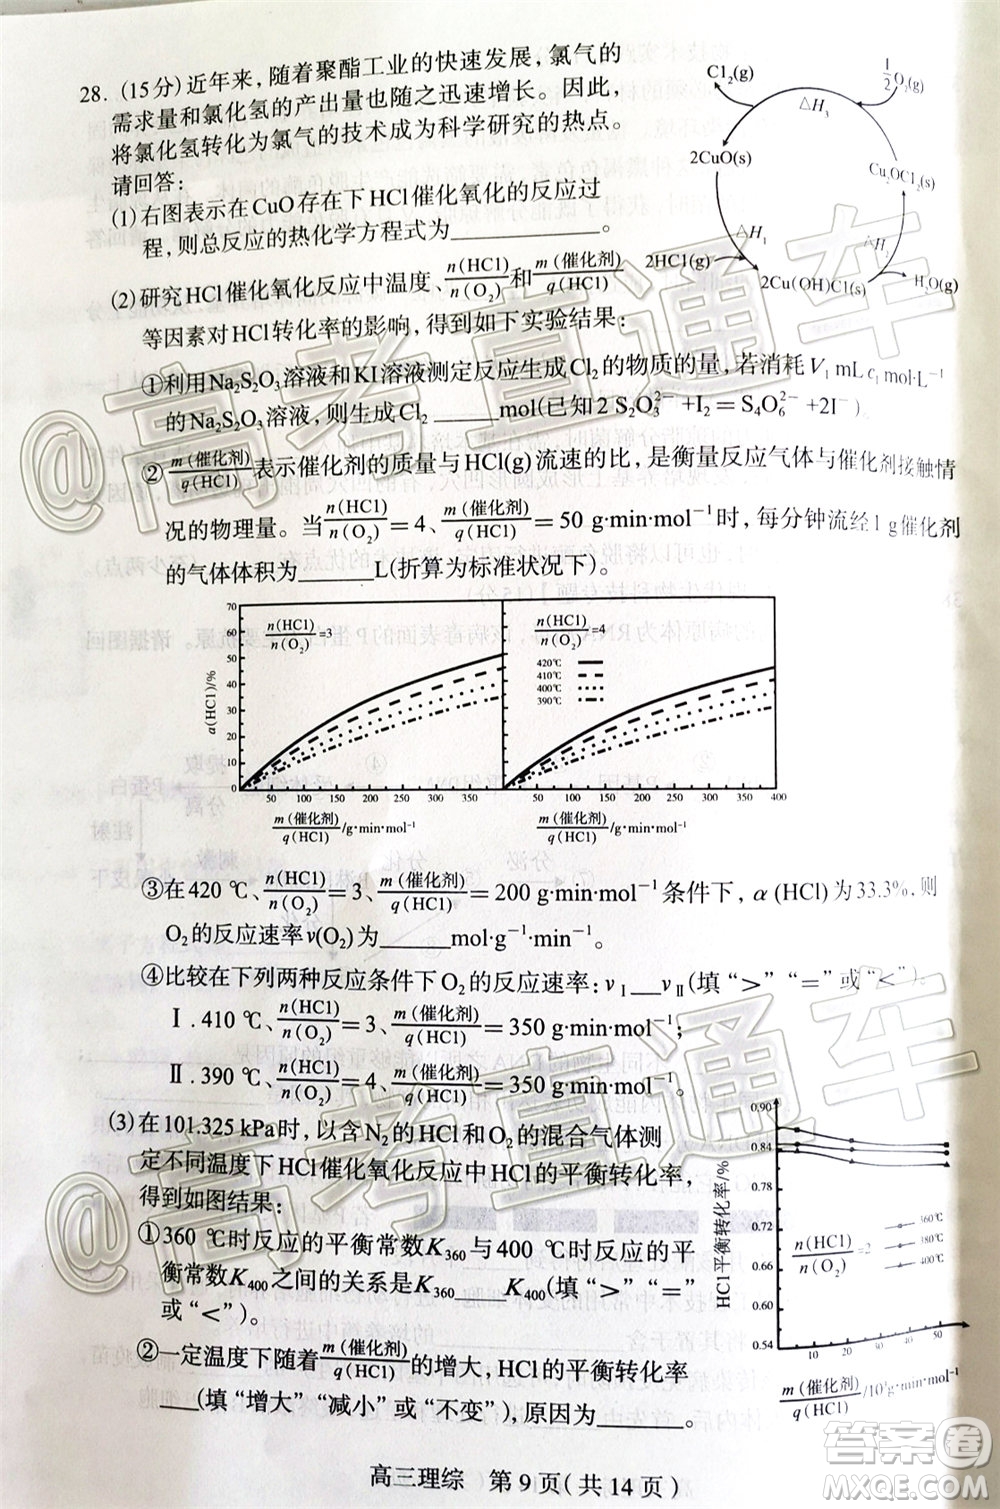 28. (15分)近年来，随着聚酯工业的快速发展，氯气的
需求量和氯化氢的产出量也随之迅速增长。因此，
将氯化氢转化为氯气的技术成为科学研究的热点。
请回答：
(1)右图表示在CuO存在下HCl催化氧化的反应过
程，则总反应的热化学方程式为________。
Cl₂(g)
½O₂(g)
△H₃
2CuO(s)
Cu₂OCl₂(s)
△H₁
△H
2HCl(g)
2Cu(OH)Cl(s)
H₂O(g)
(2)研究HCl催化氧化反应中温度、n(HCl)/n(O₂)和m(催化剂)/q(HCl)
等因素对HCl转化率的影响，得到如下实验结果：
①利用Na₂S₂O₃溶液和KI溶液测定反应生成Cl₂的物质的量，若消耗V₁ mL c₁ mol·L⁻¹
的Na₂S₂O₃溶液，则生成Cl₂____mol(已知2 S₂O₃²⁻+I₂＝S₄O₆²⁻+2I⁻)。
②m(催化剂)/q(HCl)表示催化剂的质量与HCl(g)流速的比，是衡量反应气体与催化剂接触情
况的物理量。当n(HCl)/n(O₂)＝4、m(催化剂)/q(HCl)＝50 g·min·mol⁻¹时，每分钟流经1 g催化剂
的气体体积为____L(折算为标准状况下)。
70 60 50 40 30 20 10 0
a(HCl)/%
n(HCl)/n(O₂)=3
50 100 150 200 250 300 350
m(催化剂)/q(HCl)/g·min·mol⁻¹
n(HCl)/n(O₂)=4
420℃
410℃
400℃
390℃
50 100 150 200 250 300 350 400
m(催化剂)/q(HCl)/g·min·mol⁻¹
③在420 ℃、n(HCl)/n(O₂)＝3、m(催化剂)/q(HCl)＝200 g·min·mol⁻¹条件下，α (HCl)为33.3%，则
O₂的反应速率v(O₂)为____mol·g⁻¹·min⁻¹。
④比较在下列两种反应条件下O₂的反应速率：vⅠ__vⅡ(填“>”“=”或“<”)。
Ⅰ. 410 ℃、n(HCl)/n(O₂)＝3、m(催化剂)/q(HCl)＝350 g·min·mol⁻¹；
Ⅱ. 390 ℃、n(HCl)/n(O₂)＝4、m(催化剂)/q(HCl)＝350 g·min·mol⁻¹。
(3)在101.325 kPa时，以含N₂的HCl和O₂的混合气体测
定不同温度下HCl催化氧化反应中HCl的平衡转化率，
得到如图结果：
①360 ℃时反应的平衡常数K₃₆₀与400 ℃时的平
衡常数K₄₀₀之间的关系是K₃₆₀____K₄₀₀(填“>”“=”
或“<”)。
②一定温度下随着m(催化剂)/q(HCl)的增大，HCl的平衡转化率
____(填“增大”“减小”或“不变”)，原因为______。
0.90 0.84 0.78 0.72 0.66 0.60 0.54
HCl平衡转化率/%
360℃
380℃
400℃
n(HCl)/n(O₂)=2
10 20 30 40 50
m(催化剂)/q(HCl)/10³g·min·mol⁻¹
高三理综 第9页(共14页)
@高考直通车
@高考直通车
答案圈
MXQE.COM